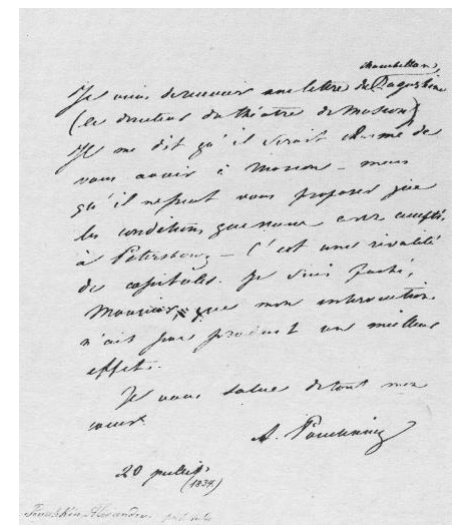 chambellan
Je viens de recevoir une lettre de Zagoskine
(le directeur du théatre de Moscou)
Il me dit qu'il serait charmé de
vous avoir à Moscou – mais
qu'il ne peut vous proposer que
les conditions que vous avez accepté
à Petersbourg – C'est une rivalité
de capitales. Je suis faché,
Monsieur, que mon intervention
n'ait pas produit un meilleur
effet.
Je vous salue de tout mon
coeur.
A. Pouchkine
20 juillet
(1834)
Poushkin Alexander.